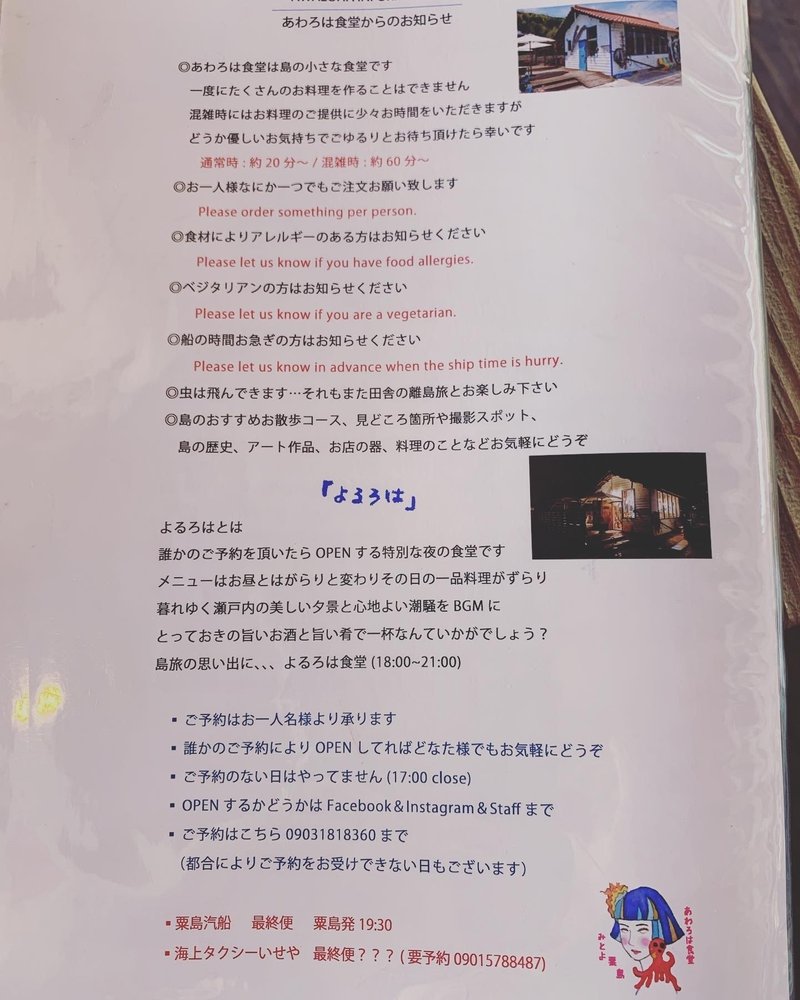 あわろは食堂からのお知らせ
◎あわろは食堂は島の小さな食堂です
一度にたくさんのお料理を作ることはできません
混雑時にはお料理のご提供に少々お時間をいただきますが
どうか優しいお気持ちでごゆるりとお待ち頂けたら幸いです
通常時 : 約 20 分〜 / 混雑時 : 約 60 分〜
◎お一人様なにか一つでもご注文お願い致します
Please order something per person.
◎食材によりアレルギーのある方はお知らせください
Please let us know if you have food allergies.
◎ベジタリアンの方はお知らせください
Please let us know if you are a vegetarian.
◎船の時間お急ぎの方はお知らせください
Please let us know in advance when the ship time is hurry.
◎虫は飛んできます…それもまた田舎の離島旅とお楽しみ下さい
◎島のおすすめお散歩コース、見どころ箇所や撮影スポット、
島の歴史、アート作品、お店の器、料理のことなどお気軽にどうぞ
「よるろは」
よるろはとは
誰かのご予約を頂いたら OPEN する特別な夜の食堂です
メニューはお昼とはがらりと変わりその日の一品料理がずらり
暮れゆく瀬戸内の美しい夕景と心地よい潮騒を BGM に
とっておきの旨いお酒と旨い肴で一杯なんていかがでしょう？
島旅の思い出に、、、よるろは食堂 (18:00~21:00)
▪ ご予約はお一人名様より承ります
▪ 誰かのご予約により OPEN してればどなた様でもお気軽にどうぞ
▪ ご予約のない日はやってません (17:00 close)
▪ OPEN するかどうかは Facebook＆Instagram＆Staff まで
▪ ご予約はこちら 09031818360 まで
（都合によりご予約をお受けできない日もございます）
▪ 粟島汽船 最終便 粟島発 19:30
▪ 海上タクシーいせや 最終便？？？ ( 要予約 09015788487)
あわろは食堂
みとよ 粟島